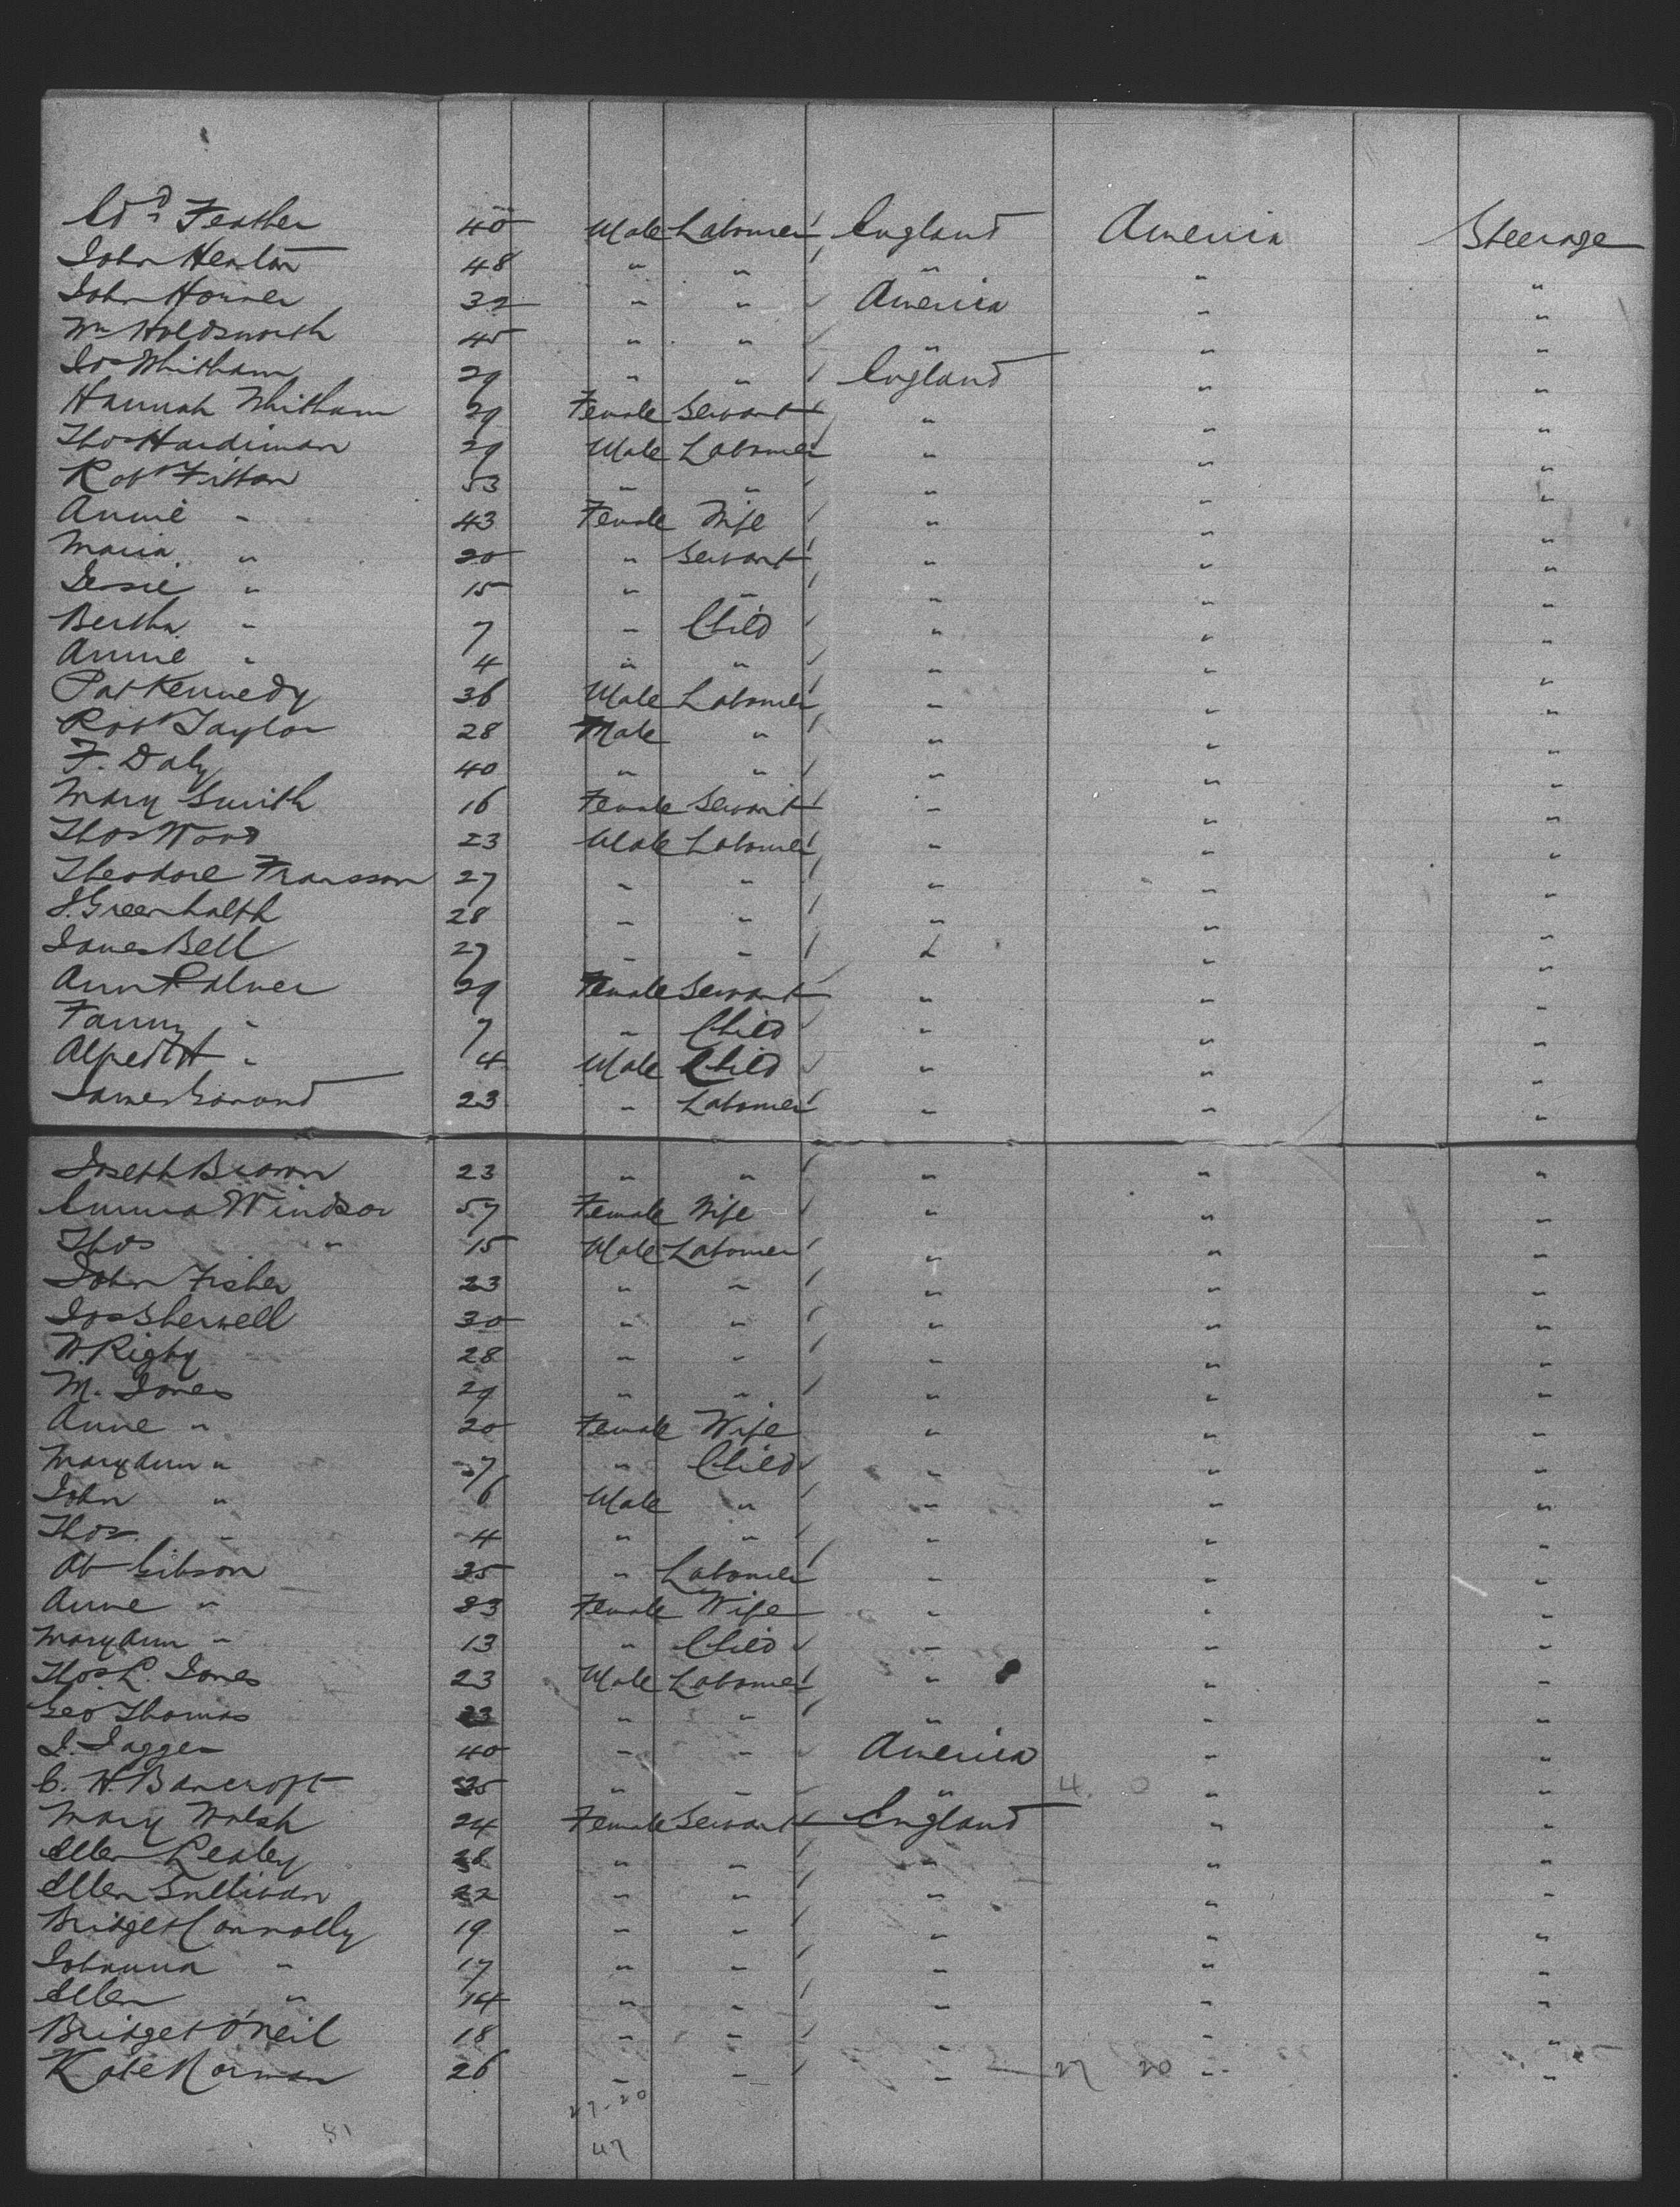 Edd Feather 40 Male Labourer England America Steerage
John Heaton 48 " " " " "
John Horner 32 " " America " "
Wm Holdsworth 45 " " " " "
Jos Whitham 29 " " England " "
Hannah Whitham 29 Female Servant " " "
Thos Hardiman 29 Male Labourer " " "
Robt Fitton 53 " " " " "
Annie " 43 Female Wife " " "
Maria " 20 " Servant " " "
Jessie " 15 " " " " "
Bertha " 7 " Child " " "
Annie " 4 " " " " "
Pat Kennedy 36 Male Labourer " " "
Robt Taylor 28 Male " " " "
F. Daly 40 " " " " "
Mary Smith 16 Female Servant " " "
Thos Wood 23 Male Labourer " " "
Theodore Fransson 27 " " " " "
J. Greenhalph 28 " " " " "
James Bell 27 " " " " "
Ann Palmer 29 Female Servant " " "
Fanny " 7 " Child " " "
Alfred " 4 Male Child " " "
James 23 " Labourer " " "
Joseph Brown 23 " " " " "
Emma Windsor 57 Female Wife " " "
Thos " 15 Male Labourer " " "
John Fisher 23 " " " " "
Jos Sherwell 30 " " " " "
W. Rigby 28 " " " " "
M. Jones 29 " " " " "
Anne " 20 Female Wife " " "
Mary Ann " 7 " Child " " "
John " 6 Male " " " "
Thos " 4 " " " " "
Ab Gibson 35 " Labourer " " "
Anne " 33 Female Wife " " "
Mary Ann " 13 " Child " " "
Thos L. Jones 23 Male Labourer " " "
Geo Thomas 23 " " " " "
J. Jagger 40 " " America " "
C. H. Bancroft 35 " " " 4 0 " "
Mary Walsh 24 Female Servant England " "
Ellen 28 " " " " "
Ellen Sullivan 22 " " " " "
Bridget Connolly 19 " " " " "
Johanna " 17 " " " " "
Ellen " 14 " " " " "
Bridget O'Neil 18 " " " " "
Kate 26 " " " 27 20 " "
27-20
51 47